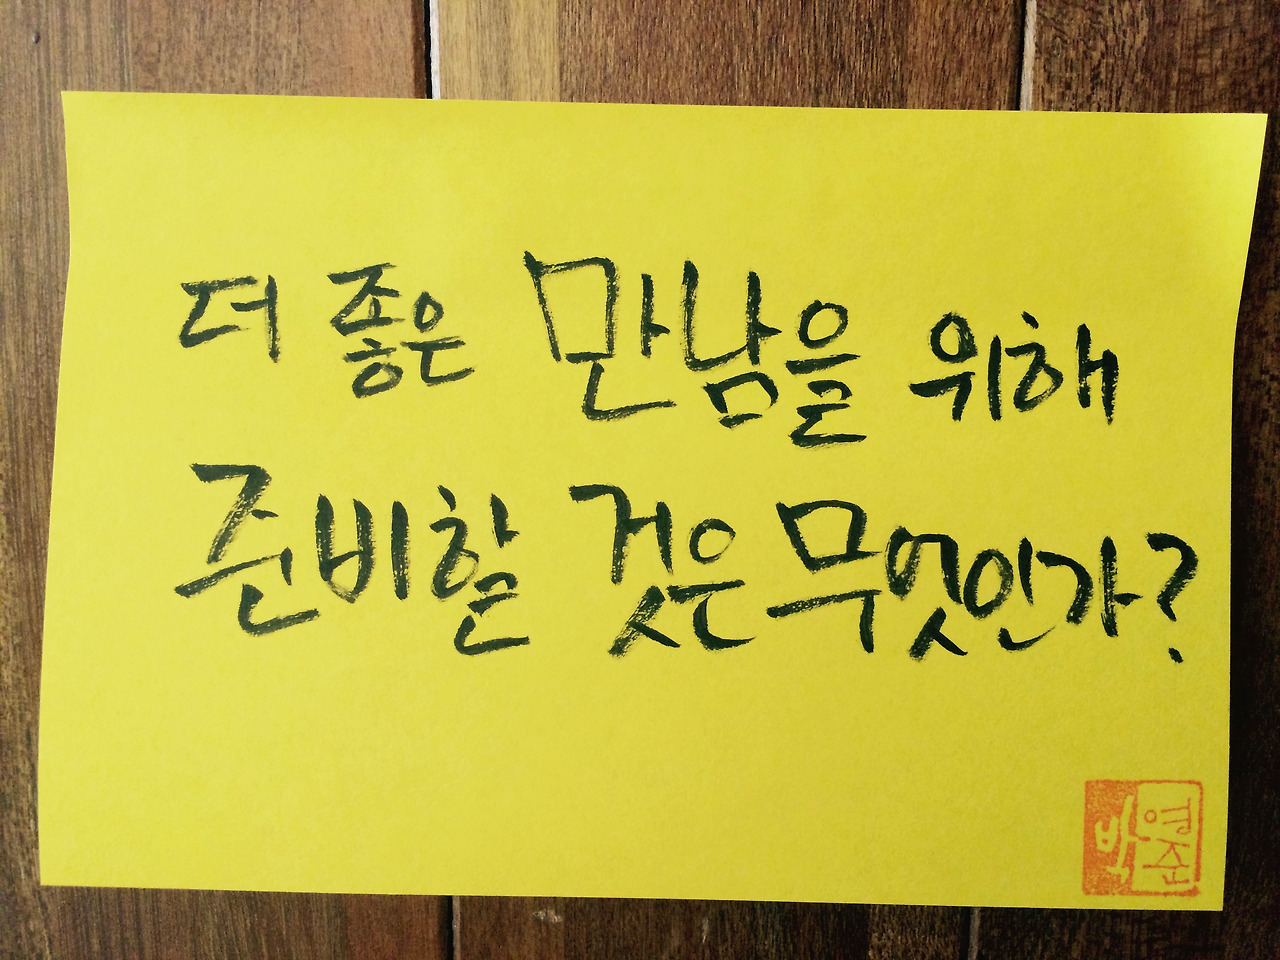 더 좋은 만남을 위해
준비할 것은 무엇인가?
박영준